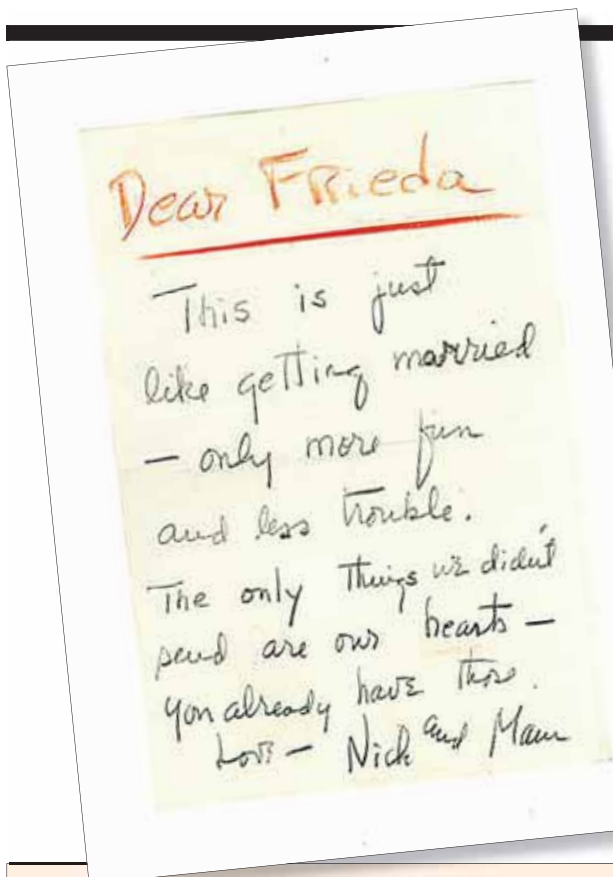 Dear Frieda
This is just
like getting married
— only more fun
and less trouble.
The only things we didn't
send are our hearts —
you already have those.
Love — Nick and